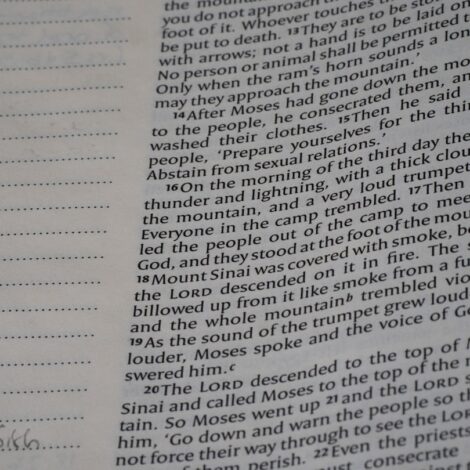 the mountain
you do not approach the
foot of it. Whoever touches the
be put to death. 13They are to be ston
with arrows; not a hand is to be laid on
No person or animal shall be permitted t
Only when the ram's horn sounds a lon
may they approach the mountain.'
14After Moses had gone down the mou
to the people, he consecrated them, an
washed their clothes. 15Then he said
people, 'Prepare yourselves for the thir
Abstain from sexual relations.'
16On the morning of the third day the
thunder and lightning, with a thick clou
the mountain, and a very loud trumpet
Everyone in the camp trembled. 17Then
led the people out of the camp to mee
God, and they stood at the foot of the mou
18Mount Sinai was covered with smoke, be
the LORD descended on it in fire. The s
billowed up from it like smoke from a fu
and the whole mountainb trembled viol
19As the sound of the trumpet grew loud
louder, Moses spoke and the voice of Go
swered him.c
20The LORD descended to the top of M
Sinai and called Moses to the top of the m
tain. So Moses went up 21and the LORD s
him, 'Go down and warn the people so th
not force their way through to see the LO
of them perish. 22Even the priests
must consecrate